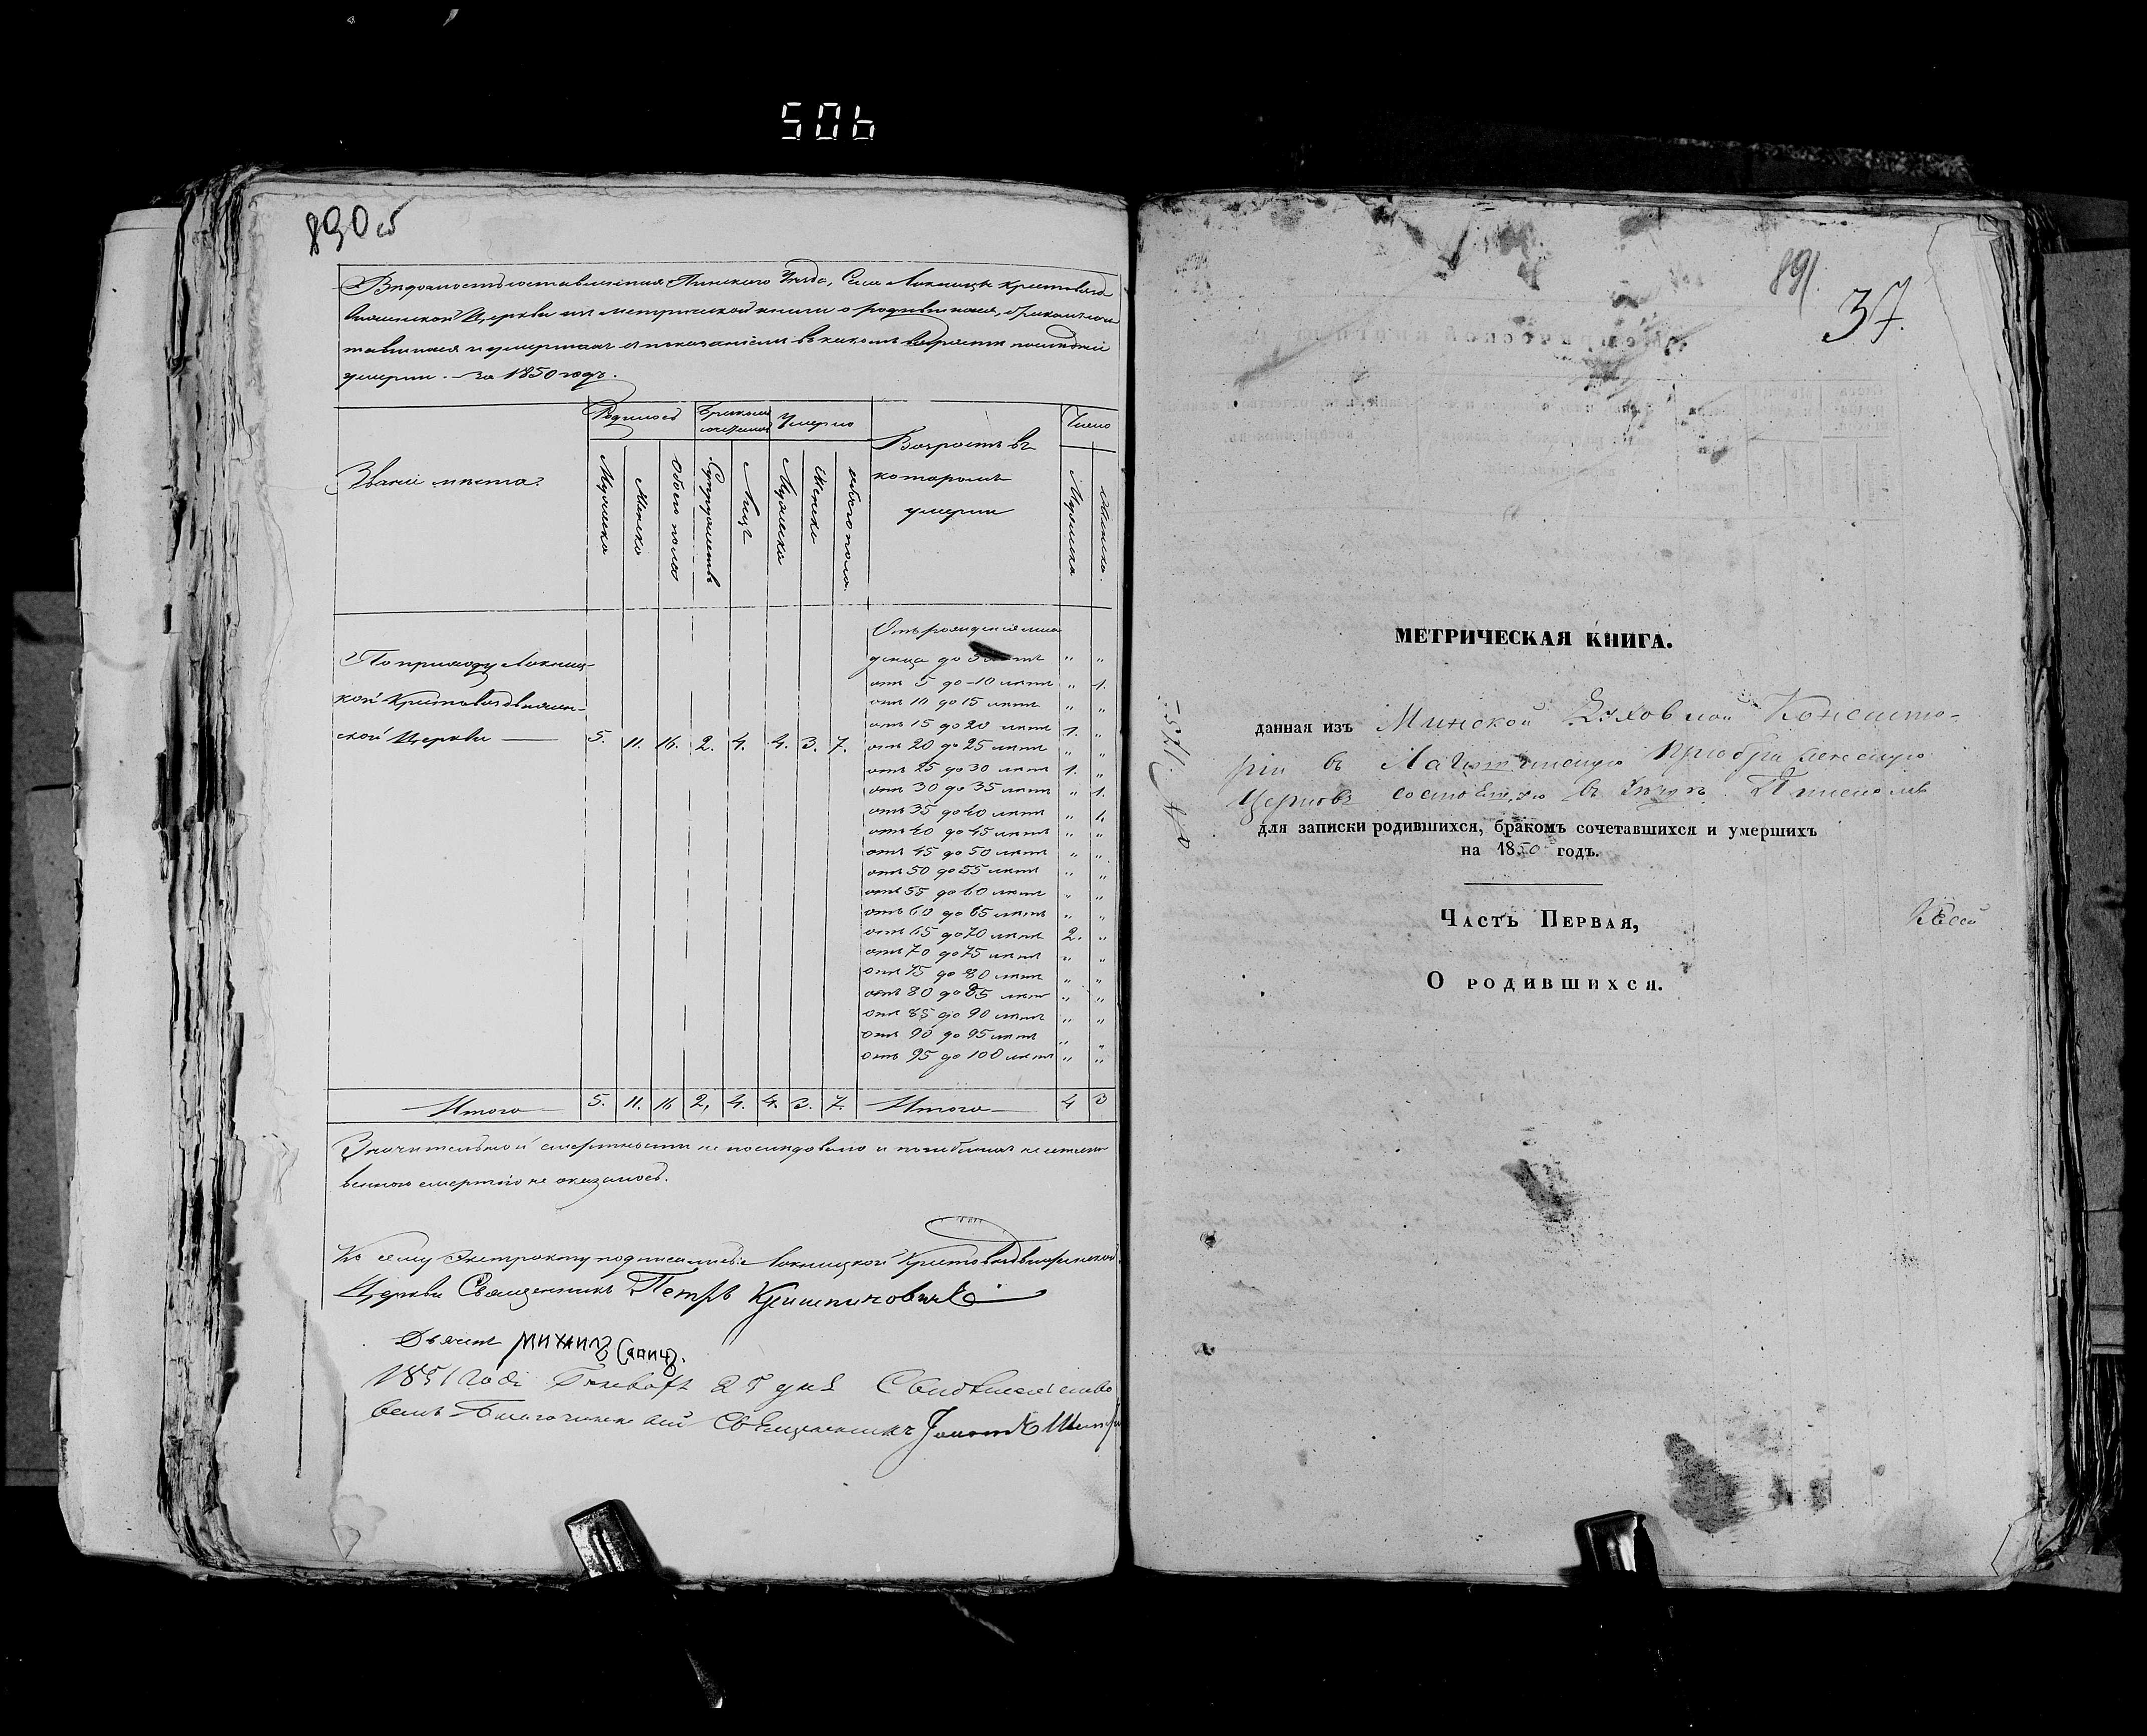 506
890об
Ведомость составленная Пинскаго Уезда, Села Локницы Крестовоздви
женской Церкви из метрической книги о родившихся, браком соче
тавшихся и умерших с показанием в каком возрасте последнии
умерли. — За 1850 годъ.
Родилось Браком сочеталось Умерло Возрастъ въ котаромъ умерли Число
Званіе места.
Мужеска Женска Обоего пола Супружествъ Лицъ Мужеска Женска обоего пола Мужеска Женска.
По приходу Локниц-
кой Крестовоздвижен-
ской Церкви — 5. 11. 16. 2. 4. 4. 3. 7.
Отъ рожденія мла
денца до 5 летъ „ „
отъ 5 до 10 летъ „ 1.
отъ 10 до 15 летъ „ „
отъ 15 до 20 летъ 1. „
отъ 20 до 25 летъ „ „
отъ 25 до 30 летъ 1. „
отъ 30 до 35 летъ „ 1.
отъ 35 до 40 летъ „ 1.
отъ 40 до 45 летъ „ „
отъ 45 до 50 летъ „ „
отъ 50 до 55 летъ „ „
отъ 55 до 60 летъ „ „
отъ 60 до 65 летъ „ „
отъ 65 до 70 летъ 2. „
отъ 70 до 75 летъ „ „
отъ 75 до 80 летъ „ „
отъ 80 до 85 летъ „ „
отъ 85 до 90 летъ „ „
отъ 90 до 95 летъ „ „
отъ 95 до 100 летъ „ „
Итого 5. 11. 16 2, 4. 4. 3. 7. Итого 4 3
Значительной смертности не последовало и погибших не естест
венною смертію не оказалось.
Къ сему Экстракту подписались: Локницкой Крестовоздвиженской
Церкви Священникъ Петръ
Дьячекъ Михаилъ
1851 года Генваря 25 дня Свидетельство
валъ Благочинный Священникъ
891
37.
МЕТРИЧЕСКАЯ КНИГА.
данная изъ Минской Духовной Консисто-
ріи въ Преображенскую
Церковь состоящую въ уезде Пинскомъ
для записки родившихся, бракомъ сочетавшихся и умершихъ
на 1850 годъ.
Часть Первая,
О родившихся.